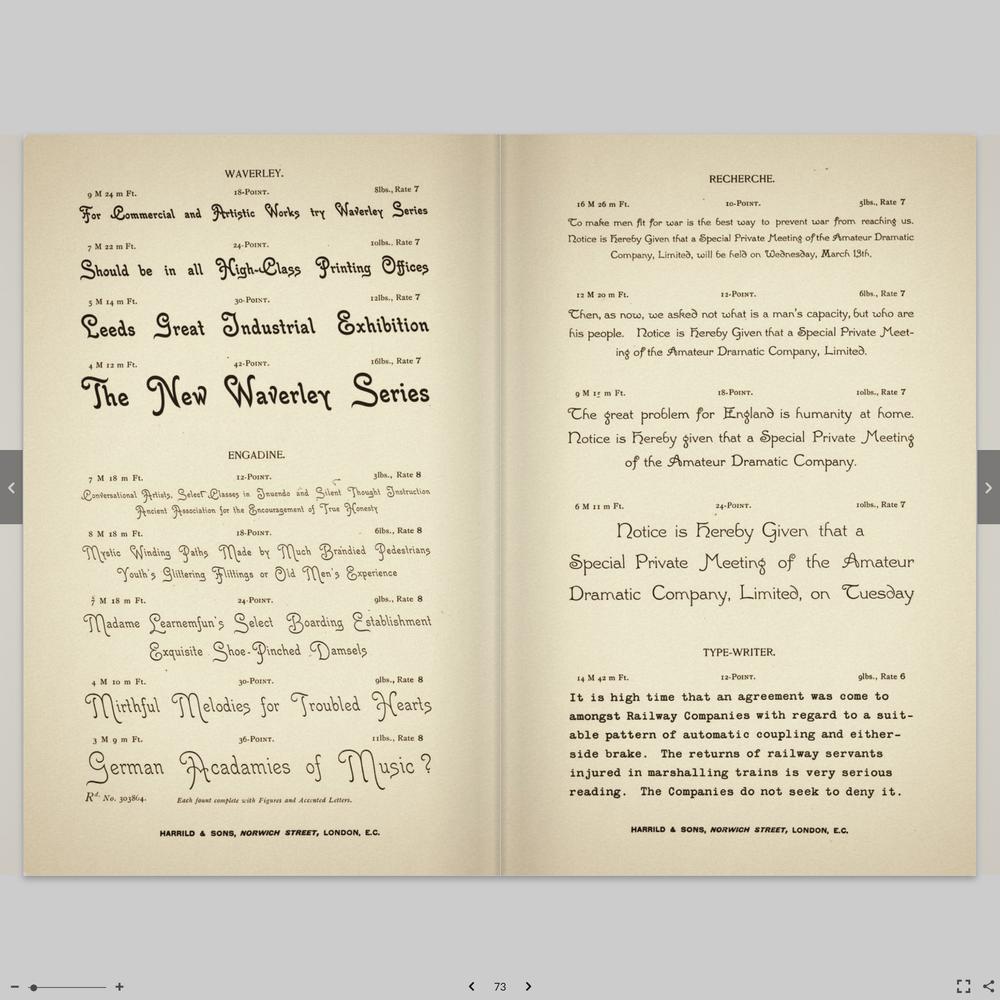 WAVERLEY.
9 M 24 m Ft. 18-POINT. 8lbs., Rate 7
For Commercial and Artistic Works try Waverley Series
7 M 22 m Ft. 24-POINT. 10lbs., Rate 7
Should be in all High-Class Printing Offices
5 M 14 m Ft. 30-POINT. 12lbs., Rate 7
Leeds Great Industrial Exhibition
4 M 12 m Ft. 42-POINT. 16lbs., Rate 7
The New Waverley Series
ENGADINE.
7 M 18 m Ft. 12-POINT. 3lbs., Rate 8
Conversational Artists, Select Classes in Inuendo and Silent Thought Instruction
Ancient Association for the Encouragement of True Honesty
8 M 18 m Ft. 18-POINT. 6lbs., Rate 8
Mystic Winding Paths Made by Much Brandied Pedestrians
Youth's Glittering Flittings or Old Men's Experience
7 M 18 m Ft. 24-POINT. 9lbs., Rate 8
Madame Learnemfun's Select Boarding Establishment
Exquisite Shoe-Pinched Damsels
4 M 10 m Ft. 30-POINT. 9lbs., Rate 8
Mirthful Melodies for Troubled Hearts
3 M 9 m Ft. 36-POINT. 11lbs., Rate 8
German Acadamies of Music ?
Rd. No. 303864. Each fount complete with Figures and Accented Letters.
HARRILD & SONS, NORWICH STREET, LONDON, E.C.
RECHERCHE.
16 M 26 m Ft. 10-POINT. 5lbs., Rate 7
To make men fit for war is the best way to prevent war from reaching us.
Notice is Hereby Given that a Special Private Meeting of the Amateur Dramatic
Company, Limited, will be held on Wednesday, March 13th.
12 M 20 m Ft. 12-POINT. 6lbs., Rate 7
Then, as now, we asked not what is a man's capacity, but who are
his people. Notice is Hereby Given that a Special Private Meet-
ing of the Amateur Dramatic Company, Limited.
9 M m Ft. 18-POINT. 10lbs., Rate 7
The great problem for England is humanity at home.
Notice is Hereby given that a Special Private Meeting
of the Amateur Dramatic Company.
6 M 11 m Ft. 24-POINT. 10lbs., Rate 7
Notice is Hereby Given that a
Special Private Meeting of the Amateur
Dramatic Company, Limited, on Tuesday
TYPE-WRITER.
14 M 42 m Ft. 12-POINT. 9lbs., Rate 6
It is high time that an agreement was come to
amongst Railway Companies with regard to a suit-
able pattern of automatic coupling and either-
side brake. The returns of railway servants
injured in marshalling trains is very serious
reading. The Companies do not seek to deny it.
HARRILD & SONS, NORWICH STREET, LONDON, E.C.
73